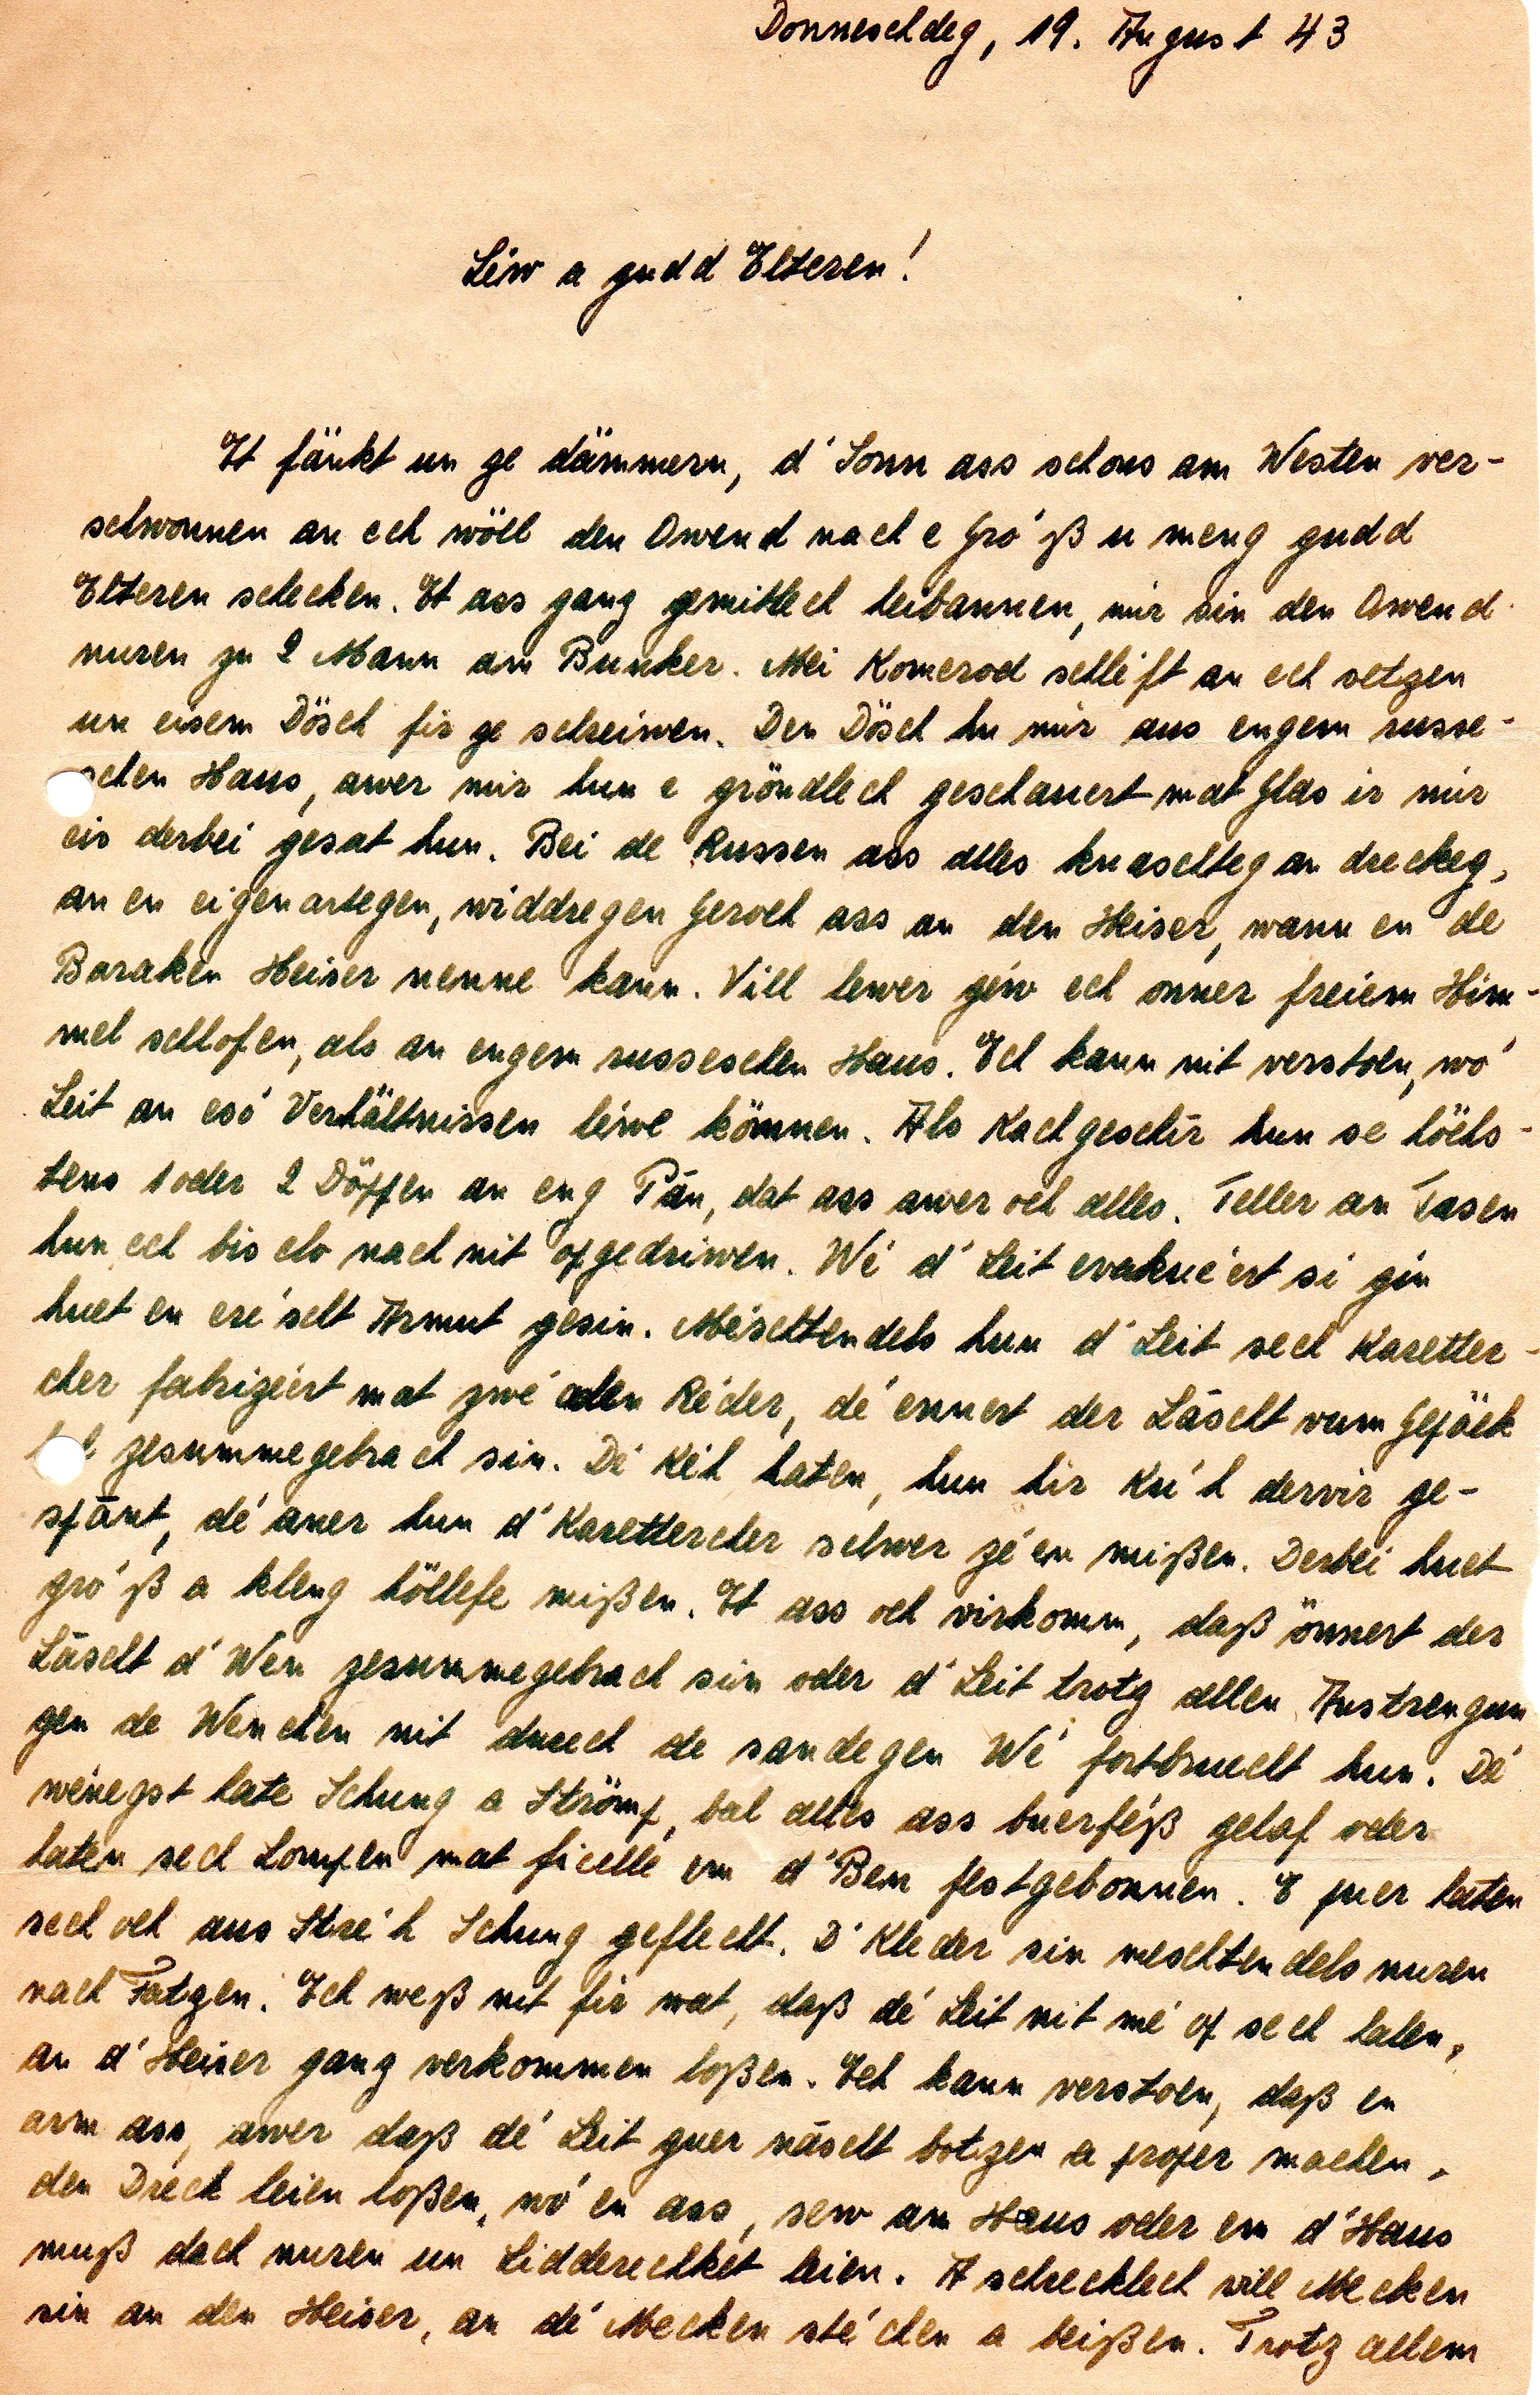 Donneschdeg, 19. August 43
Léiw a gudd Elteren!
Et fänkt un ze dämmern, d'Sonn ass schons am Westen ver-
schwonnen an ech wöll den Owend nach e Gró'ß u meng gudd
Elteren schecken. Et ass ganz gemitlech heibannen, mir sin den Owend
nuren zu 2 Mann am Bunker. Mei Komerod schléift an ech setzen
un eisem Dösch fir ze schreiwen. Den Dösch hu mir aus engem russe-
schen Haus, awer mir hun e gröndlech geschauert mat Glas ir mir
eis derbei gesat hun. Bei de Russen ass alles knaschteg an dreckeg,
an en eigenartegen, widdregen Geroch ass an den Heiser, wann en de
Baraken Heiser nenne kann. Vill léwer géiw ech onner freiem Him-
mel schlofen, als an engem russeschen Haus. Ech kann nit verstoen, wó'
Leit an esó' Verhältnissen léwe können. Als Kachgeschir hun se höchs-
tens 1 oder 2 Döppen an eng Pan, dat ass awer och alles. Teller an Tasen
hun ech bis elo nach nit opgedriwen. Wé' d'Leit evakué'ert si gin
huet en eré'scht Armut gesin. Mé'schtendels hun d'Leit sech Karetter-
cher fabrizéiert mat zwé' alen Réder, dé' ennert der Läscht vum Gepäck
zesummegebrach sin. Dé' Kéih haten, hun hir Kú'h dervir ge-
spänt, dé' aner hun d'Karettercher selwer zé'en mißen. Derbei huet
gró'ß a kleng höllefe mißen. Et ass och virkomm, daß önnert der
Läscht d'Wen zesummegebrach sin oder d'Leit trotz allen Anstrengun
gen de Wenchen nit duech de sandegen Wé' fortbruecht hun. Dé'
wéinegst hate Schung a Strömp, bal alles ass buerféiß gelaf oder
haten sech Lompen mat ficelle em d'Been festgebonnen. E puer haten
sech och aus Stré'h Schung geflecht. D'Kleder sin meschtendels nuren
nach Fatzen. Ech weß nit fir wat, daß dé' Leit nit mé' op sech halen,
an d'Heiser ganz verkommen loßen. Ech kann verstoen, daß en
arm ass, awer daß dé' Leit guer näscht botzen a proper machen,
den Dreck leien loßen, wó' en ass, sew am Haus oder em d'Haus
muß dach nuren un Lidderechkét leien. A schrecklech vill Mecken
sin an den Heiser, an dé' Mecken sté'chen a beißen. Trotz allem